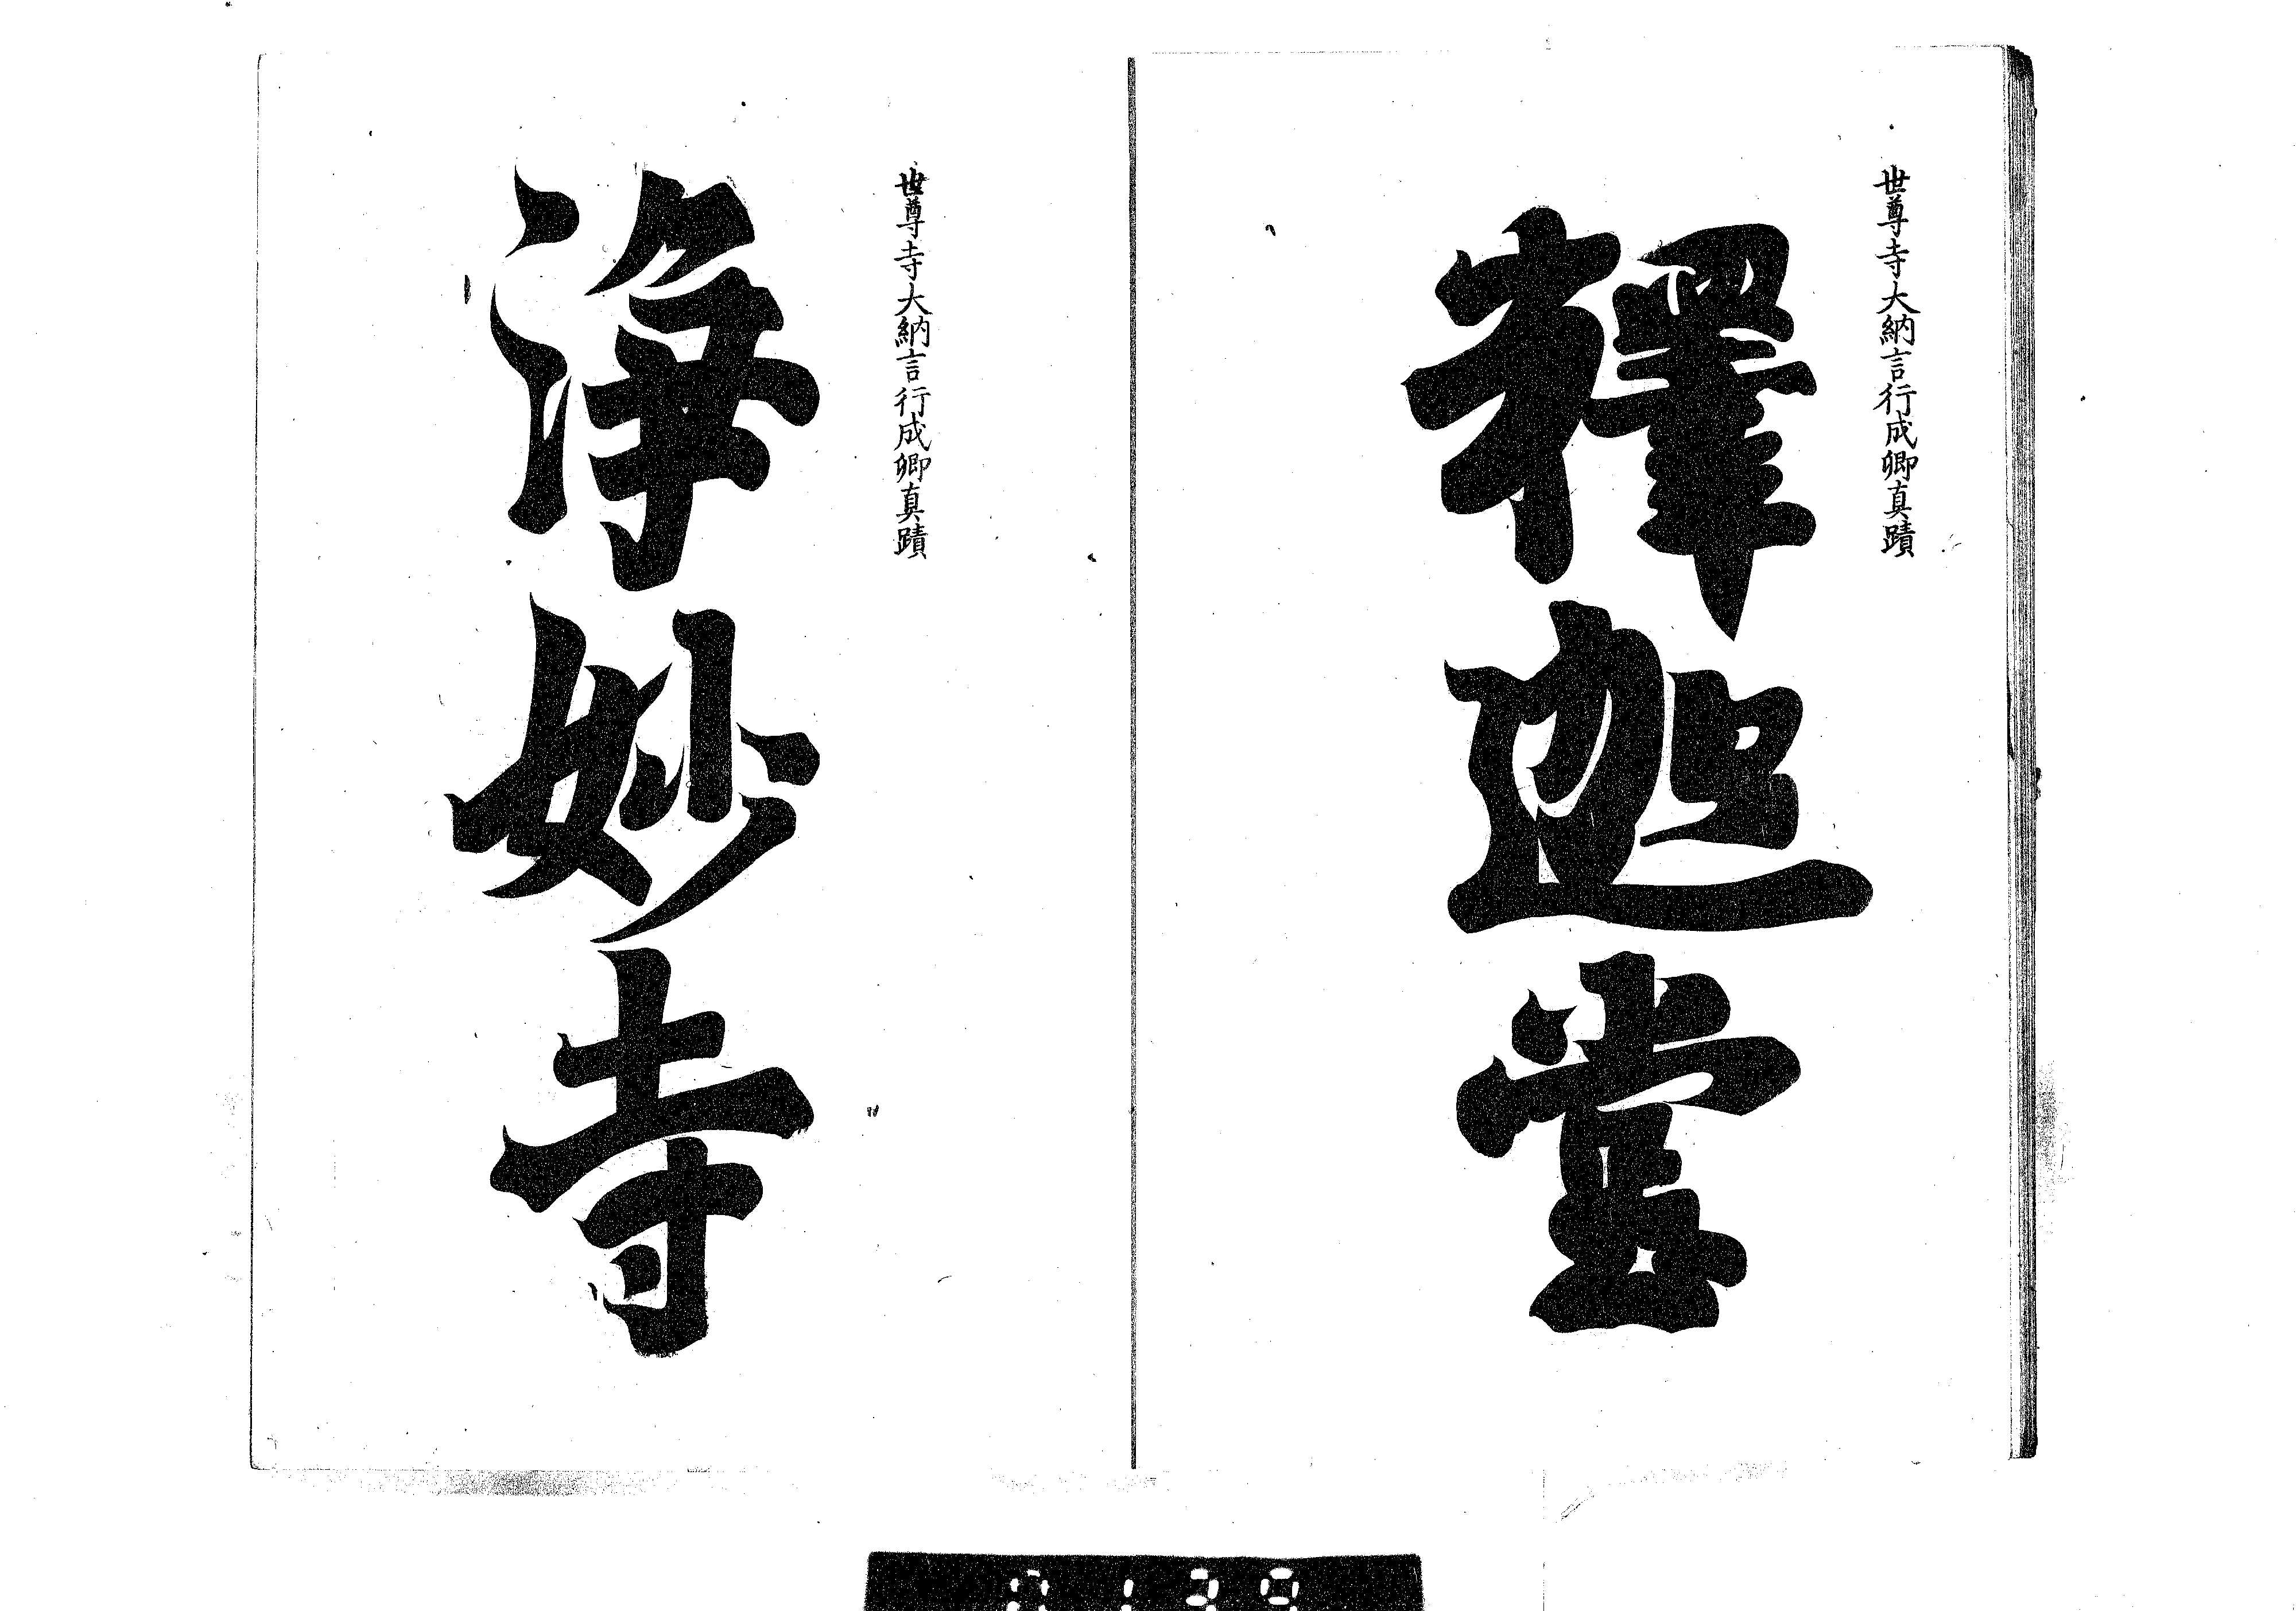 世尊寺大納言行成卿真蹟
釋迦堂
世尊寺大納言行成卿真蹟
浄妙寺